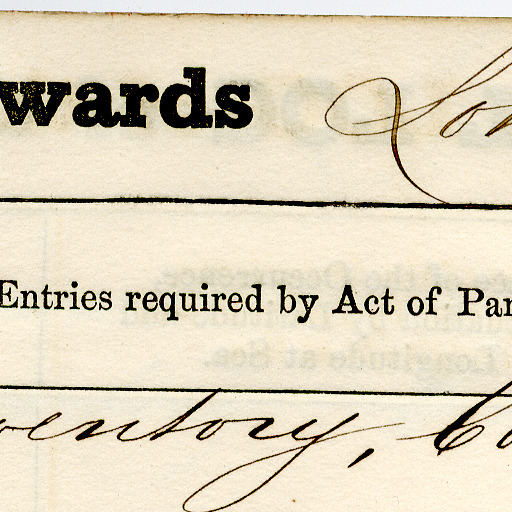 wards Lon
Entries required by Act of Par
ventory, Co